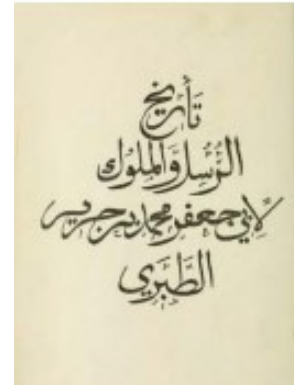 تأريخ
الرُّسل وَالملوك
لأبي جعفر محمد بن جرير
الطَّبَري